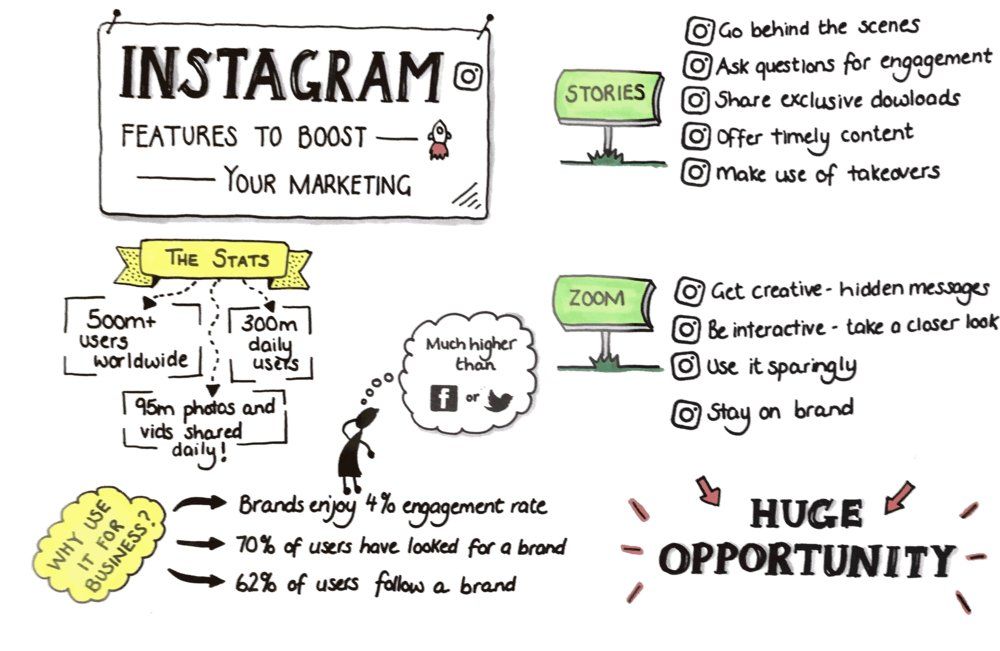 INSTAGRAM
FEATURES TO BOOST
YOUR MARKETING
STORIES
Go behind the scenes
Ask questions for engagement
Share exclusive dowloads
Offer timely content
Make use of takeovers
THE STATS
500m+
users
worldwide
300m
daily
users
95m photos and
vids shared
daily!
Much higher
than
f or
ZOOM
Get creative - hidden messages
Be interactive - take a closer look
Use it sparingly
Stay on brand
WHY USE
IT FOR
BUSINESS?
Brands enjoy 4% engagement rate
70% of users have looked for a brand
62% of users follow a brand
HUGE
OPPORTUNITY